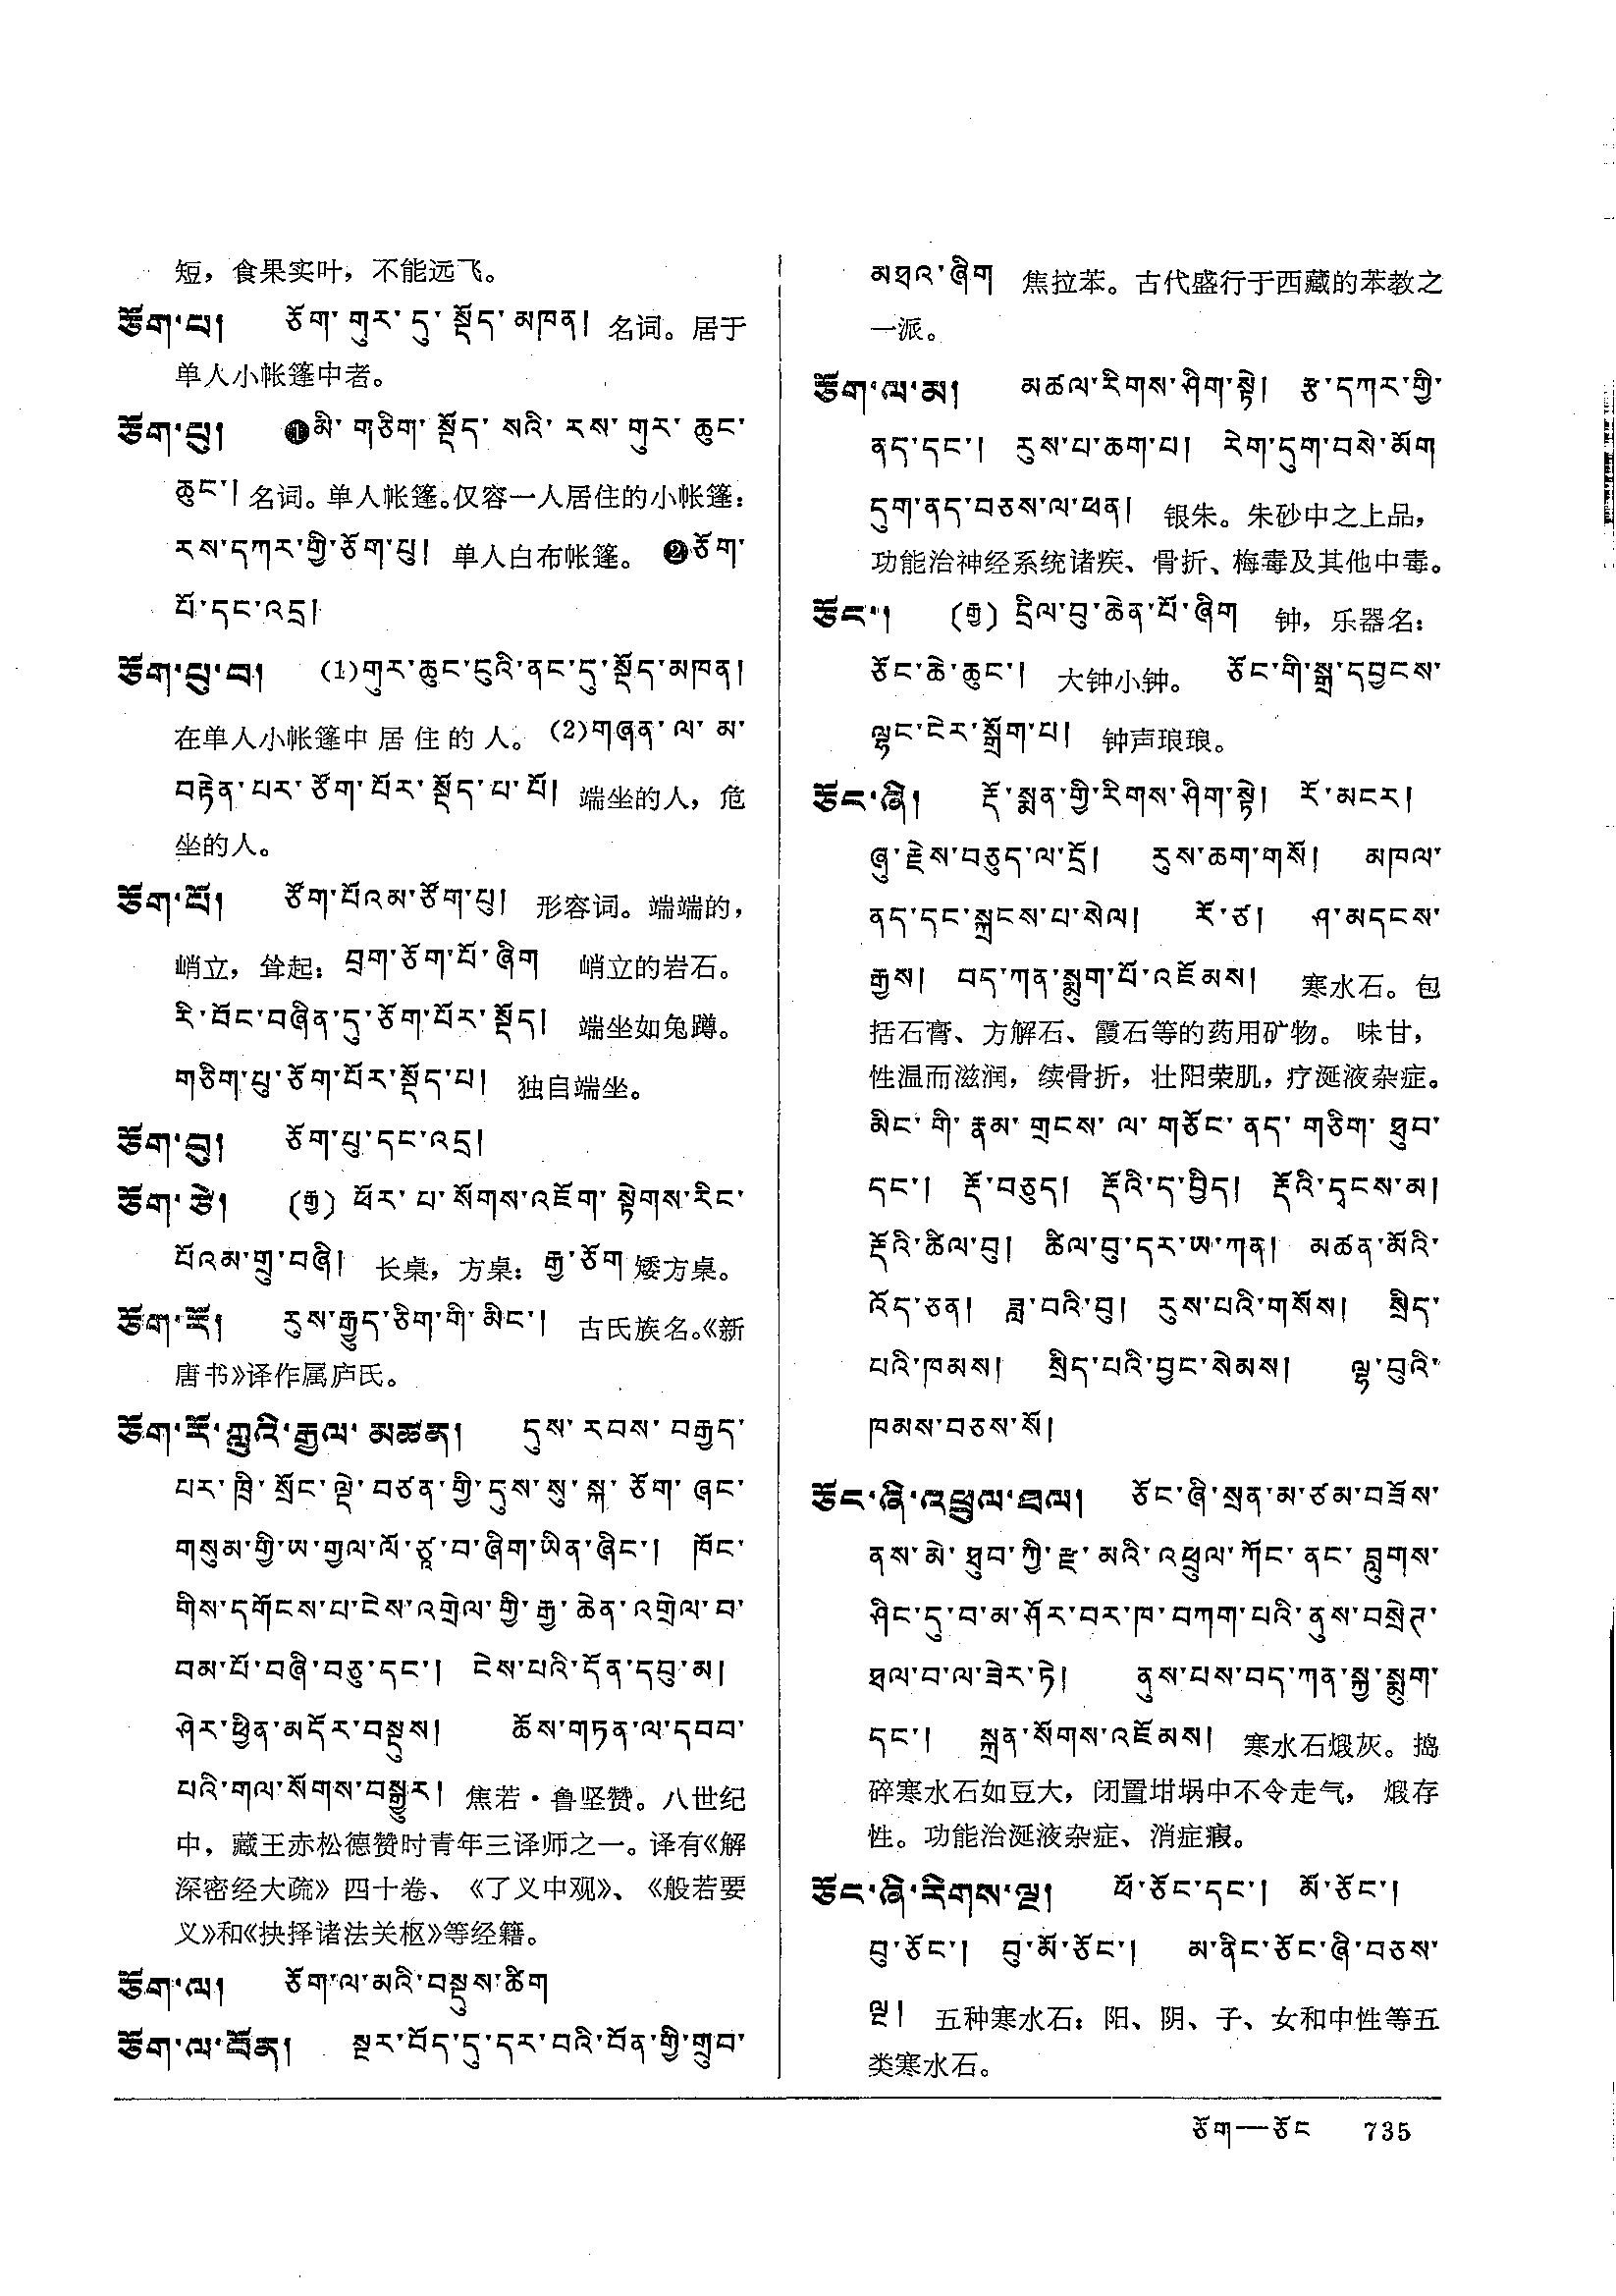 短，食果实叶，不能远飞。
ཙོག་པ།　ཙོག་གུར་དུ་སྡོད་མཁན། 名词。居于
单人小帐篷中者。
ཙོག་པུ།　❶མི་གཅིག་སྡོད་སའི་རས་གུར་ཆུང་
ཆུང་། 名词。单人帐篷。仅容一人居住的小帐篷：
རས་དཀར་གྱི་ཙོག་པུ། 单人白布帐篷。 ❷ཙོག་
པོ་དང་འདྲ།
ཙོག་པུ་བ།　(1)གུར་ཆུང་ངུའི་ནང་དུ་སྡོད་མཁན།
在单人小帐篷中居住的人。(2)གཞན་ལ་མ་
བརྟེན་པར་ཙོག་པོར་སྡོད་པ་པོ། 端坐的人，危
坐的人。
ཙོག་པོ།　ཙོག་པོའམ་ཙོག་པུ། 形容词。端端的，
峭立，耸起：བྲག་ཙོག་པོ་ཞིག 峭立的岩石。
རི་བོང་བཞིན་དུ་ཙོག་པོར་སྡོད། 端坐如兔蹲。
གཅིག་པུ་ཙོག་པོར་སྡོད་པ། 独自端坐。
ཙོག་བུ།　ཙོག་པུ་དང་འདྲ།
ཙོག་ཙེ།　(རྒྱ) ཕོར་པ་སོགས་འཇོག་སྟེགས་རིང་
པོའམ་གྲུ་བཞི། 长桌，方桌：རྒྱ་ཙོག 矮方桌。
ཙོག་རོ།　རུས་རྒྱུད་ཅིག་གི་མིང་། 古氏族名。《新
唐书》译作属庐氏。
ཙོག་རོ་ཀླུའི་རྒྱལ་མཚན།　དུས་རབས་བརྒྱད་
པར་ཁྲི་སྲོང་ལྡེ་བཙན་གྱི་དུས་སུ་སྐ་ཙོག་ཞང་
གསུམ་གྱི་ཨ་གྱལ་ལོ་ཙཱ་བ་ཞིག་ཡིན་ཞིང་། ཁོང་
གིས་དགོངས་པ་ངེས་འགྲེལ་གྱི་རྒྱ་ཆེན་འགྲེལ་བ་
བམ་པོ་བཞི་བཅུ་དང་། ངེས་པའི་དོན་དབུ་མ།
ཤེར་ཕྱིན་མདོར་བསྡུས། ཆོས་གཏན་ལ་དབབ་
པའི་གལ་སོགས་བསྒྱུར། 焦若·鲁坚赞。八世纪
中，藏王赤松德赞时青年三译师之一。译有《解
深密经大疏》四十卷、《了义中观》、《般若要
义》和《抉择诸法关枢》等经籍。
ཙོག་ལ།　ཙོག་ལ་མའི་བསྡུས་ཚིག
ཙོག་ལ་བོན།　སྔར་བོད་དུ་དར་བའི་བོན་གྱི་གྲུབ་
མཐའ་ཞིག 焦拉苯。古代盛行于西藏的苯教之
一派。
ཙོག་ལ་མ།　མཚལ་རིགས་ཤིག་སྟེ། རྩ་དཀར་གྱི་
ནད་དང་། རུས་པ་ཆག་པ། རེག་དུག་བསེ་མོག
དུག་ནད་བཅས་ལ་ཕན། 银朱。朱砂中之上品，
功能治神经系统诸疾、骨折、梅毒及其他中毒。
ཙོང་།　(རྒྱ) དྲིལ་བུ་ཆེན་པོ་ཞིག 钟，乐器名：
ཙོང་ཆེ་ཆུང་། 大钟小钟。 ཙོང་གི་སྒྲ་དབྱངས་
ལྷང་ངེར་སྒྲོག་པ། 钟声琅琅。
ཙོང་ཞི།　རྡོ་སྨན་གྱི་རིགས་ཤིག་སྟེ། རོ་མངར།
ཞུ་རྗེས་བཅུད་ལ་དྲོ། རུས་ཆག་གསོ། མཁལ་
ནད་དང་སྐྲངས་པ་སེལ། རོ་ཙ། ཤ་མདངས་
རྒྱས། བད་ཀན་སྨུག་པོ་འཇོམས། 寒水石。包
括石膏、方解石、霞石等的药用矿物。 味甘，
性温而滋润，续骨折，壮阳荣肌，疗涎液杂症。
མིང་གི་རྣམ་གྲངས་ལ་གཅོང་ནད་གཅིག་ཐུབ་
དང་། རྡོ་བཅུད། རྡོའི་ད་བྱིད། རྡོའི་དྭངས་མ།
རྡོའི་ཚིལ་བུ། ཚིལ་བུ་དར་ཡ་ཀན། མཚན་མོའི་
འོད་ཅན། ཟླ་བའི་བུ། རུས་པའི་གསོས། སྲིད་
པའི་ཁམས། སྲིད་པའི་བྱང་སེམས། ལྷ་བུའི་
ཁམས་བཅས་སོ།
ཙོང་ཞི་འཕྲུལ་ཐལ།　ཙོང་ཞི་སྲན་མ་ཙམ་བཟོས་
ནས་མེ་ཐུབ་ཀྱི་རྫ་མའི་འཕྲུལ་ཀོང་ནང་བླུགས་
ཤིང་དུ་བ་མ་ཤོར་བར་ཁ་བཀག་པའི་ནུས་བསྲེཊ་
ཐལ་བ་ལ་ཟེར་ཏེ། ནུས་པས་བད་ཀན་སྐྱ་སྨུག་
དང་། སྐྲན་སོགས་འཇོམས། 寒水石煅灰。捣
碎寒水石如豆大，闭置坩埚中不令走气， 煅存
性。功能治涎液杂症、消症瘕。
ཙོང་ཞི་རིགས་ལྔ།　ཕོ་ཙོང་དང་། མོ་ཙོང་།
བུ་ཙོང་། བུ་མོ་ཙོང་། མ་ནིང་ཙོང་ཞི་བཅས་
ལྔ། 五种寒水石：阳、阴、子、女和中性等五
类寒水石。
ཙོག—ཙོང 735